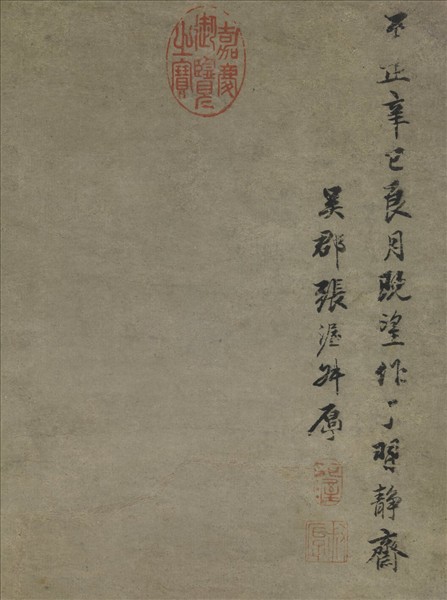 至正辛巳良月既望作于習靜齋
吳郡張渥叔厚
嘉慶御覽之寶